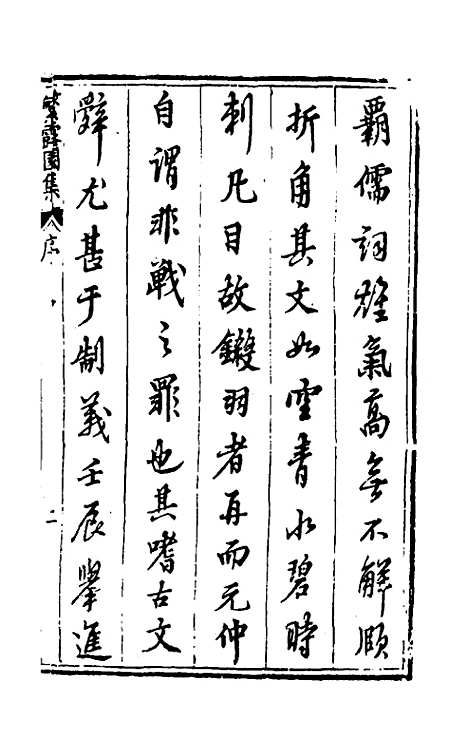 霸儒詞雄氣高無不解頤
折角其文如空青水碧時
刺凡目故鎩羽者再而元仲
自謂非戰之罪也其嗜古文
辭尤甚于制義壬辰舉進
繁露園集 序 二